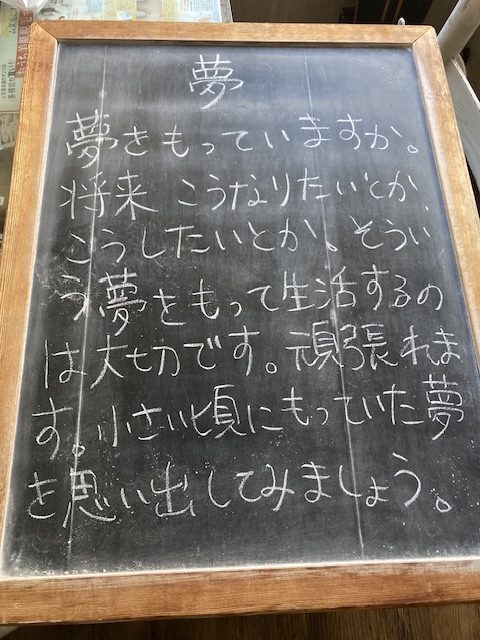 夢
夢をもっていますか。
将来 こうなりたいとか、
こうしたいとか。そうい
う夢をもって生活するの
は大切です。頑張れま
す。小さい頃にもっていた夢
を思い出してみましょう。